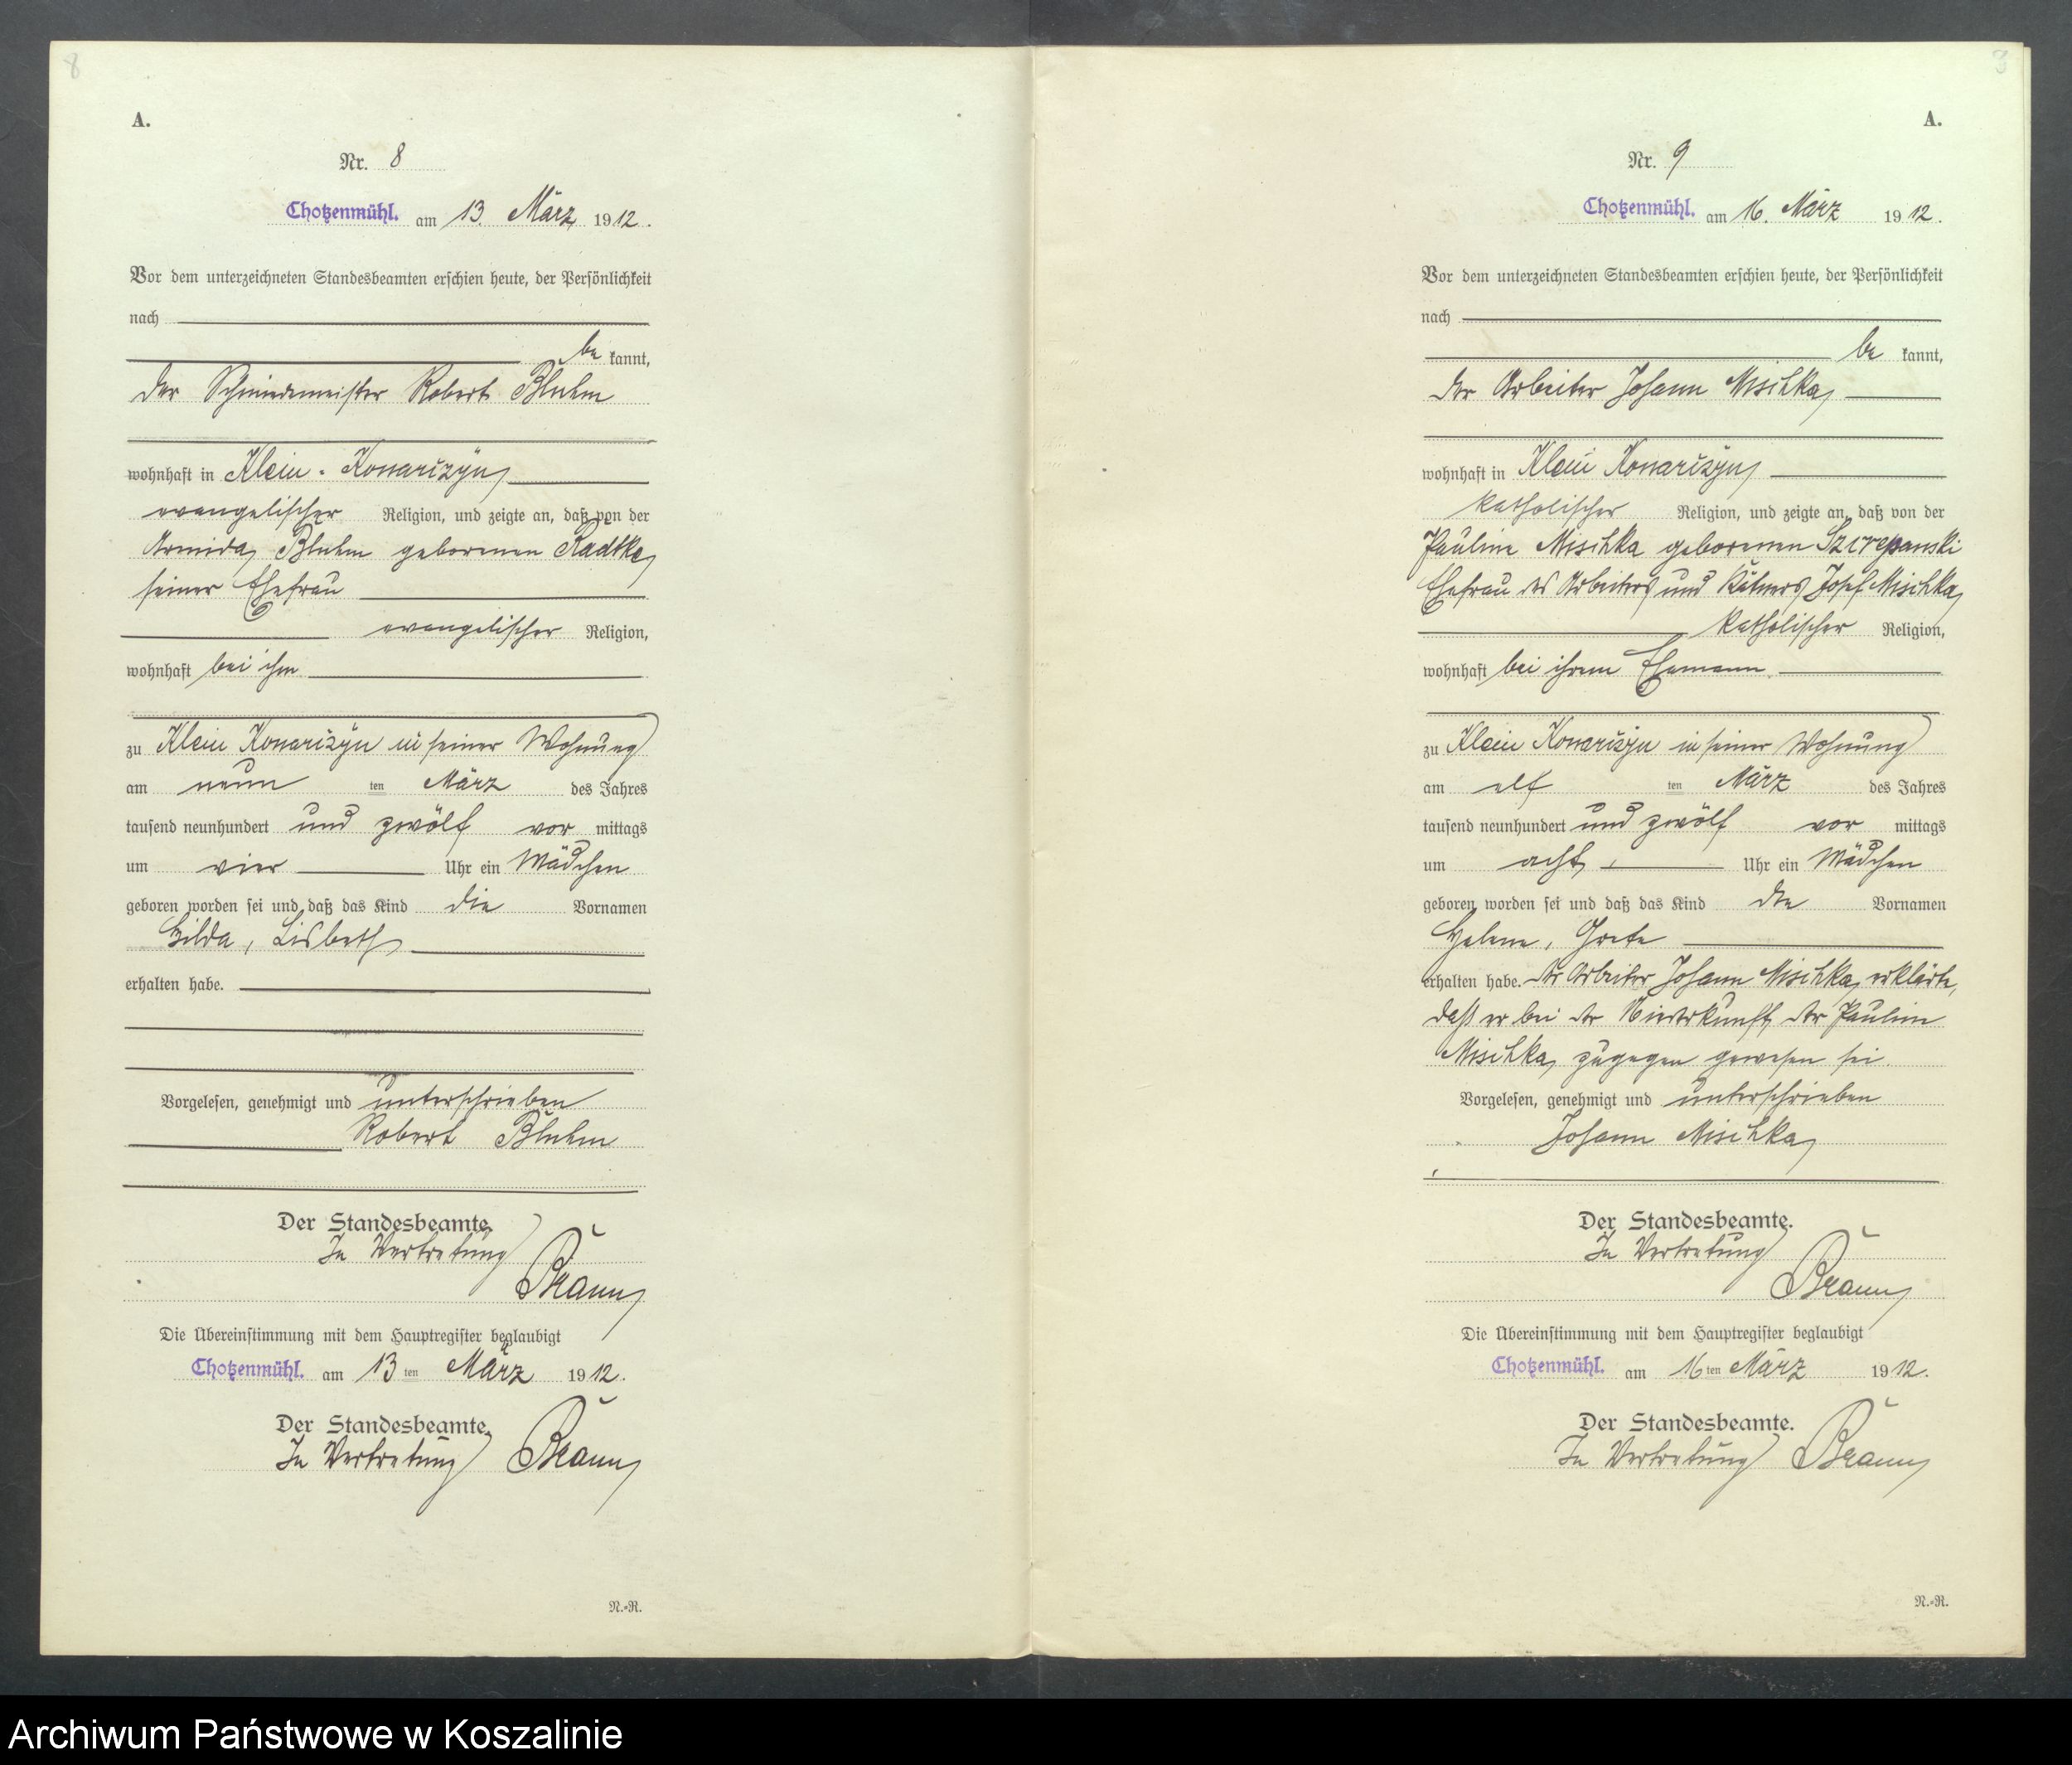 8
A.
Nr. 8
Chotzenmühl. am 13. März 1912.
Vor dem unterzeichneten Standesbeamten erschien heute, der Persönlichkeit
nach
be kannt,
der Schmiedemeister Robert Bluhm
wohnhaft in Klein-Konarczyn,
evangelischer Religion, und zeigte an, daß von der
Armida Bluhm geborenen Radtke,
seiner Ehefrau
evangelischer Religion,
wohnhaft bei ihm
zu Klein Konarczyn in seiner Wohnung
am neun ten März des Jahres
tausend neunhundert und zwölf vor mittags
um vier Uhr ein Mädchen
geboren worden sei und daß das Kind die Vornamen
Hilda, Lisbeth
erhalten habe.
Vorgelesen, genehmigt und unterschrieben
Robert Bluhm
Der Standesbeamte.
In Vertretung
Braun
Die Übereinstimmung mit dem Hauptregister beglaubigt
Chotzenmühl. am 13 ten März 1912.
Der Standesbeamte.
In Vertretung Braun
N.-R.
A.
Nr. 9
Chotzenmühl. am 16. März 1912.
Vor dem unterzeichneten Standesbeamten erschien heute, der Persönlichkeit
nach
be kannt,
der Arbeiter Johann Mischka,
wohnhaft in Klein Konarczyn,
katholischer Religion, und zeigte an, daß von der
Pauline Mischka geborenen Szczepanski
Ehefrau des Arbeiters und Kätners Josef Mischka,
katholischer Religion,
wohnhaft bei ihrem Ehemann.
zu Klein Konarczyn in seiner Wohnung
am elf ten März des Jahres
tausend neunhundert und zwölf vor mittags
um acht Uhr ein Mädchen
geboren worden sei und daß das Kind die Vornamen
Helene, Grete
erhalten habe. Der Arbeiter Johann Mischka erklärte,
daß er bei der Niederkunft der Pauline
Mischka zugegen gewesen sei.
Vorgelesen, genehmigt und unterschrieben
Johann Mischka
Der Standesbeamte.
In Vertretung
Braun
Die Übereinstimmung mit dem Hauptregister beglaubigt
Chotzenmühl. am 16 ten März 1912.
Der Standesbeamte.
In Vertretung Braun
N.-R.
Archiwum Państwowe w Koszalinie